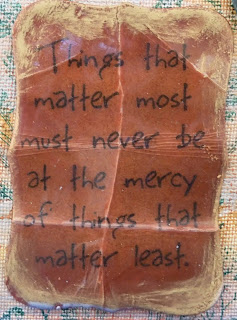 Things that
matter most
must never be
at the mercy
of things that
matter least.